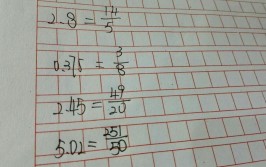 2.8 = 14/5
0.375 = 3/8
2.45 = 49/20
5.02 = 251/50